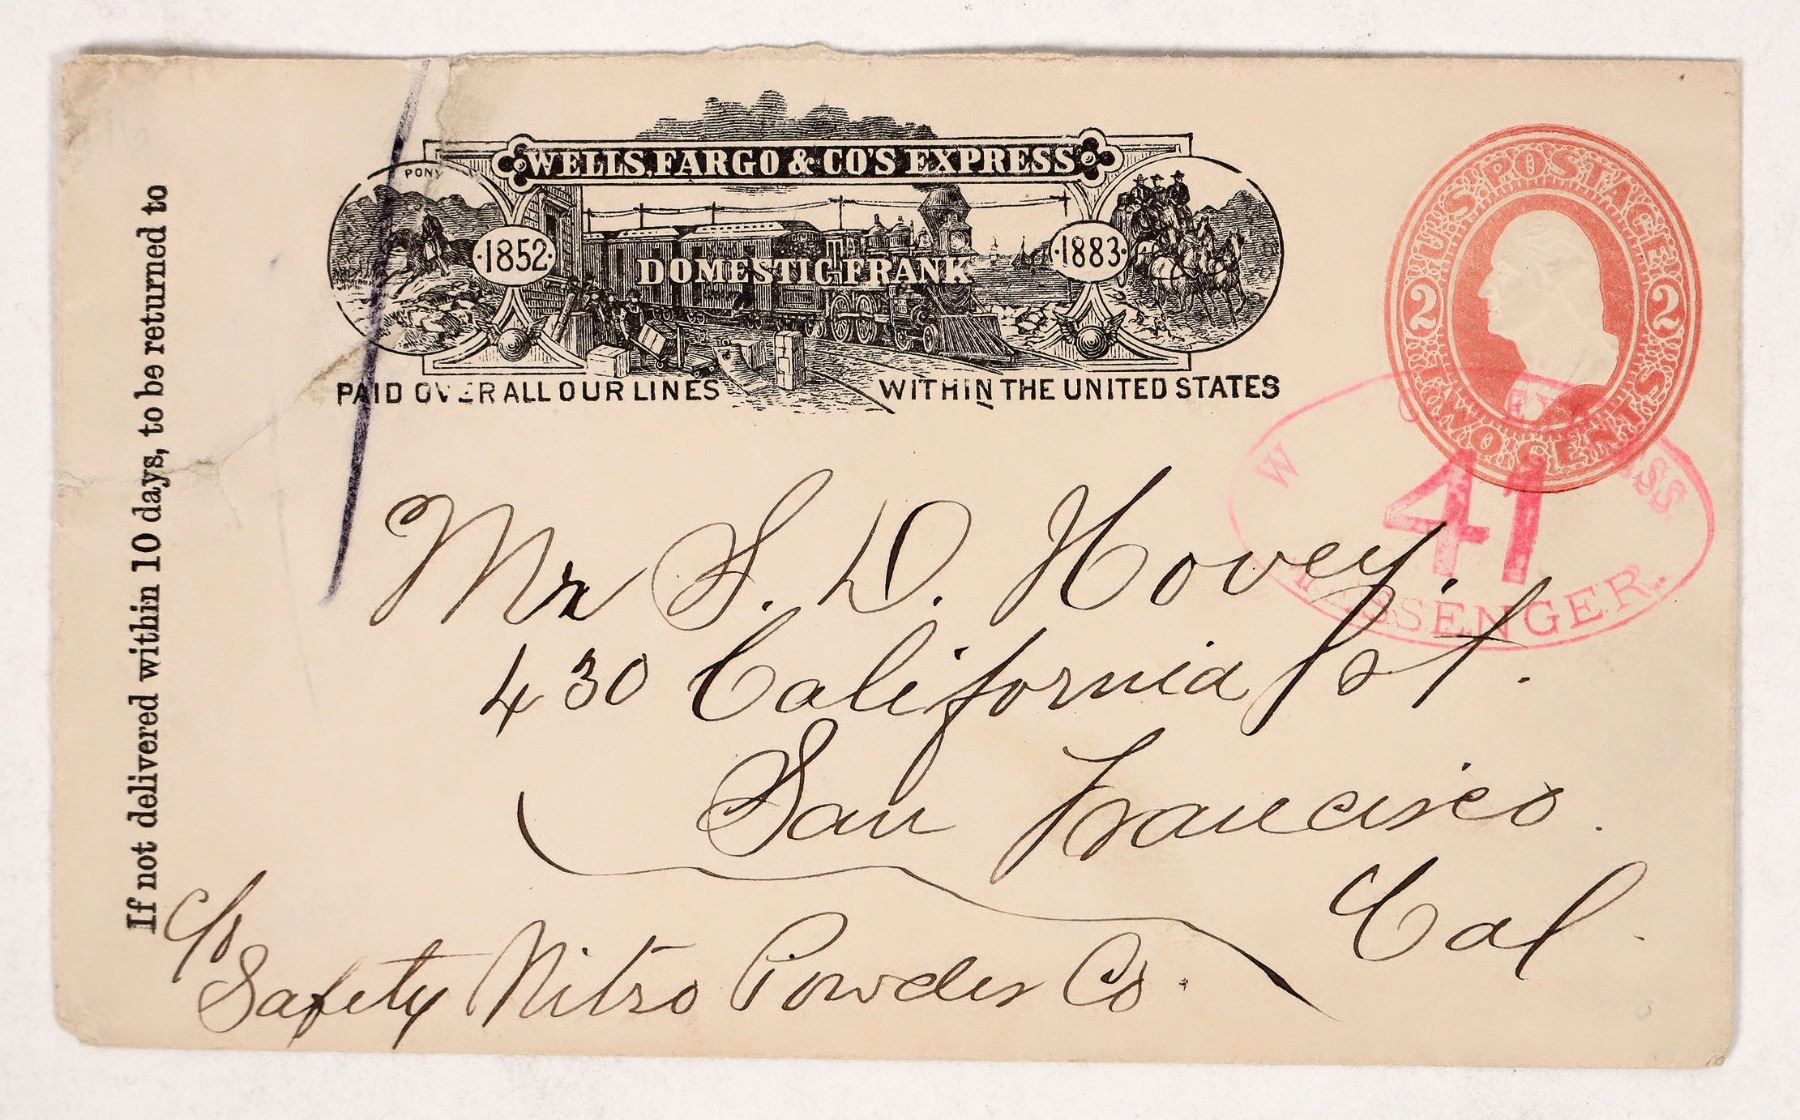 WELLS, FARGO & CO'S EXPRESS
PONY
·1852·
·1883·
DOMESTIC FRANK
PAID OVER ALL OUR LINES WITHIN THE UNITED STATES
U.S. POSTAGE
2 2
TWO CENTS
W
SS.
41
MESSENGER.
If not delivered within 10 days, to be returned to
Mr S. D. Hovey.
430 California St.
San Francisco.
Cal.
c/o
Safety Nitro Powder Co.